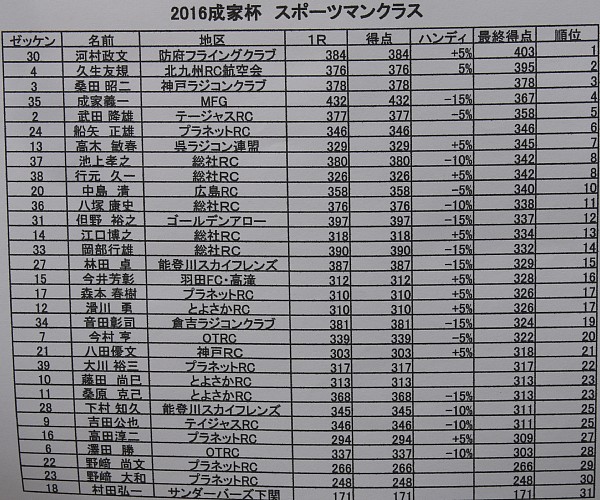 2016成家杯 スポーツマンクラス
ゼッケン 名前 地区 1R 得点 ハンディ 最終得点 順位
30 河村政文 防府フライングクラブ 384 384 +5% 403 1
4 久生友規 北九州RC航空会 376 376 5% 395 2
3 桑田 昭二 神戸ラジコンクラブ 378 378 378 3
35 成家義一 MFG 432 432 -15% 367 4
2 武田 隆雄 テージャスRC 377 377 -5% 358 5
24 船矢 正雄 プラネットRC 346 346 346 6
13 高木 敏春 呉ラジコン連盟 329 329 +5% 345 7
37 池上孝之 総社RC 380 380 -10% 342 8
38 行元 久一 総社RC 326 326 +5% 342 8
20 中島 清 広島RC 358 358 -5% 340 10
36 八塚 康史 総社RC 376 376 -10% 338 11
31 但野 裕之 ゴールデンアロー 397 397 -15% 337 12
14 江口博之 総社RC 318 318 +5% 334 13
33 岡部行雄 総社RC 390 390 -15% 332 14
27 林田 卓 能登川スカイフレンズ 387 387 -15% 329 15
15 今井芳彰 羽田FC・高滝 312 312 +5% 328 16
17 森本 春樹 プラネットRC 310 310 +5% 326 17
12 滑川 勇 とよさかRC 310 310 +5% 326 17
34 音田彰司 倉吉ラジコンクラブ 381 381 -15% 324 19
7 今村 亨 OTRC 339 339 -5% 322 20
21 八田優文 神戸RC 303 303 +5% 318 21
39 大川 裕三 プラネットRC 317 317 317 22
10 藤田 尚巳 とよさかRC 313 313 313 23
11 桑原 克己 とよさかRC 368 368 -15% 313 23
28 下村 知久 能登川スカイフレンズ 345 345 -10% 311 25
9 吉田公也 テイジャスRC 346 346 -10% 311 25
16 高田淳二 プラネットRC 294 294 +5% 309 27
6 澤田 勝 OTRC 337 337 -10% 303 28
22 野﨑 尚文 プラネットRC 266 266 266 29
23 野﨑 大和 プラネットRC 248 248 248 30
18 村田弘一 サンダーバーズ下関 171 171 171 31